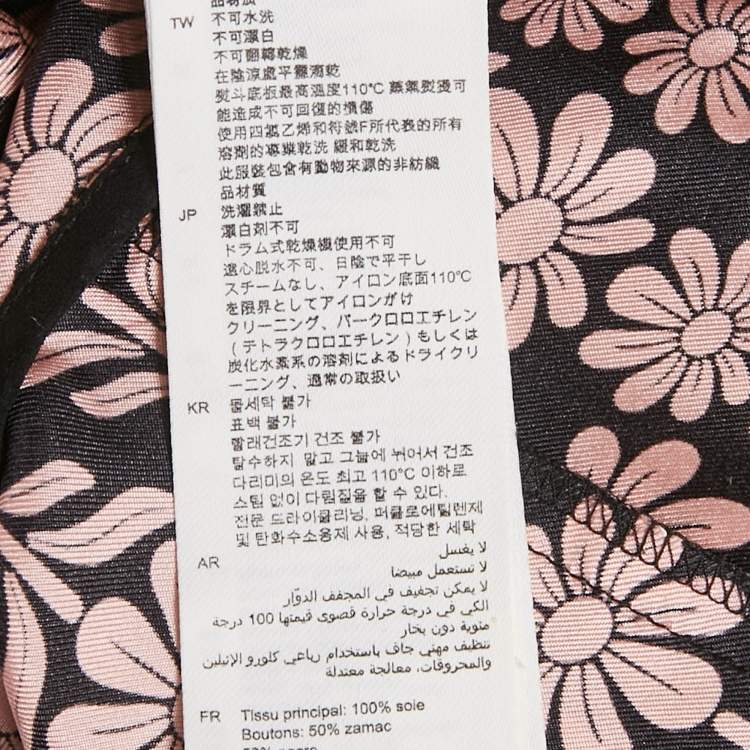 品材質
TW 不可水洗
不可漂白
不可翻轉乾燥
在陰涼處平攤滴乾
熨斗底板最高溫度110℃ 蒸氣熨燙可
能造成不可回復的損傷
使用四氯乙烯和符號F所代表的所有
溶劑的專業乾洗 緩和乾洗
此服裝包含有動物來源的非紡織
品材質
JP 洗濯禁止
漂白剤不可
ドラム式乾燥機使用不可
遠心脱水不可、日陰で平干し
スチームなし、アイロン底面110℃
を限界としてアイロンがけ
クリーニング、パークロロエチレン
(テトラクロロエチレン) もしくは
炭化水素系の溶剤によるドライクリ
ーニング、通常の取扱い
KR 물세탁 불가
표백 불가
빨래건조기 건조 불가
탈수하지 말고 그늘에 뉘어서 건조
다리미의 온도 최고 110℃ 이하로
스팀 없이 다림질을 할 수 있다.
전문 드라이클리닝, 퍼클로에틸렌제
및 탄화수소용제 사용, 적당한 세탁
AR لا يغسل
لا تستعمل مبيضا
لا يمكن تجفيف في المجفف الدوّار
الكي في درجة حرارة قصوى قيمتها 100 درجة
مئوية دون بخار
تنظيف مهني جاف باستخدام رباعي كلورو الإتيلين
والمحروقات، معالجة معتدلة
FR Tissu principal: 100% soie
Boutons: 50% zamac